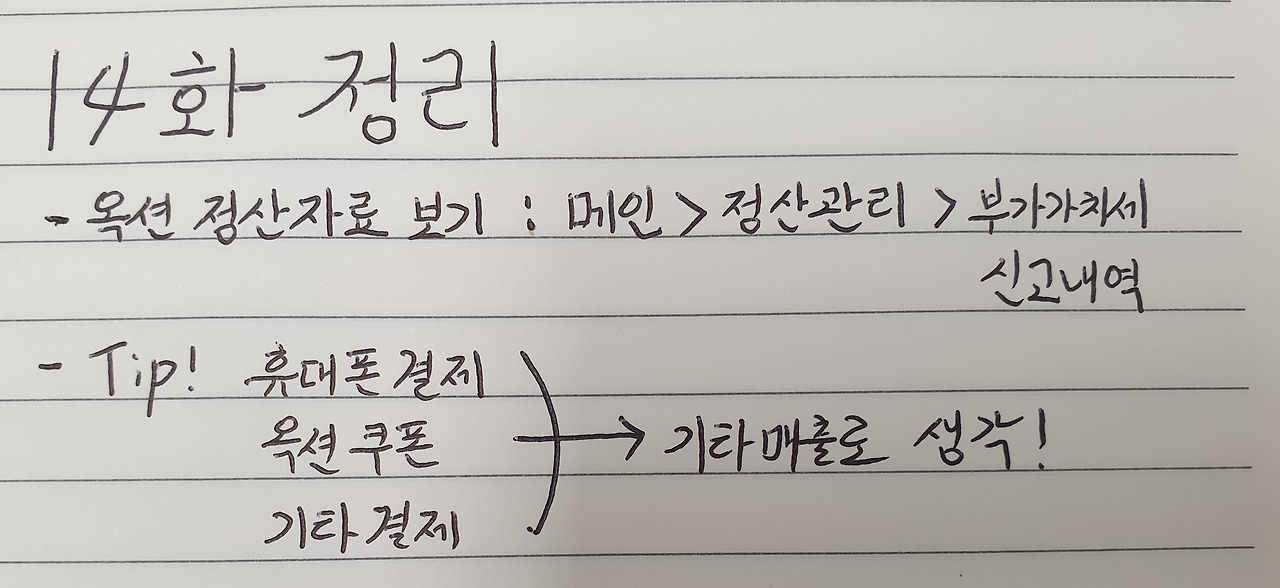 14화 정리
- 옥션 정산자료 보기 : 메인 > 정산관리 > 부가가치세
신고내역
- Tip! 휴대폰결제
옥션쿠폰 → 기타매출로 생각!
기타결제